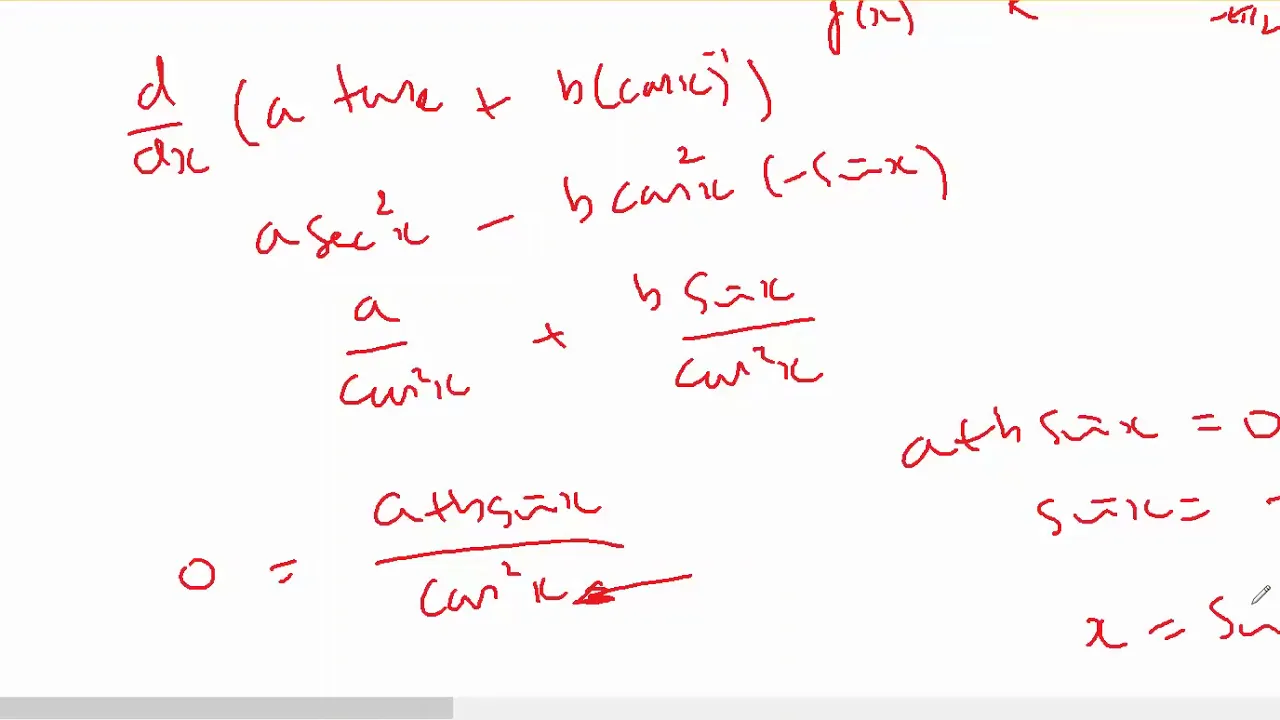 f(x)
d/dx (a tan x + b(cos x)⁻¹)
a sec²x - b cos²x (-sin x)
a/cos²x + b sin x/cos²x
a + b sin x = 0
0 = a + b sin x/cos²x
sin x = -
x = sin